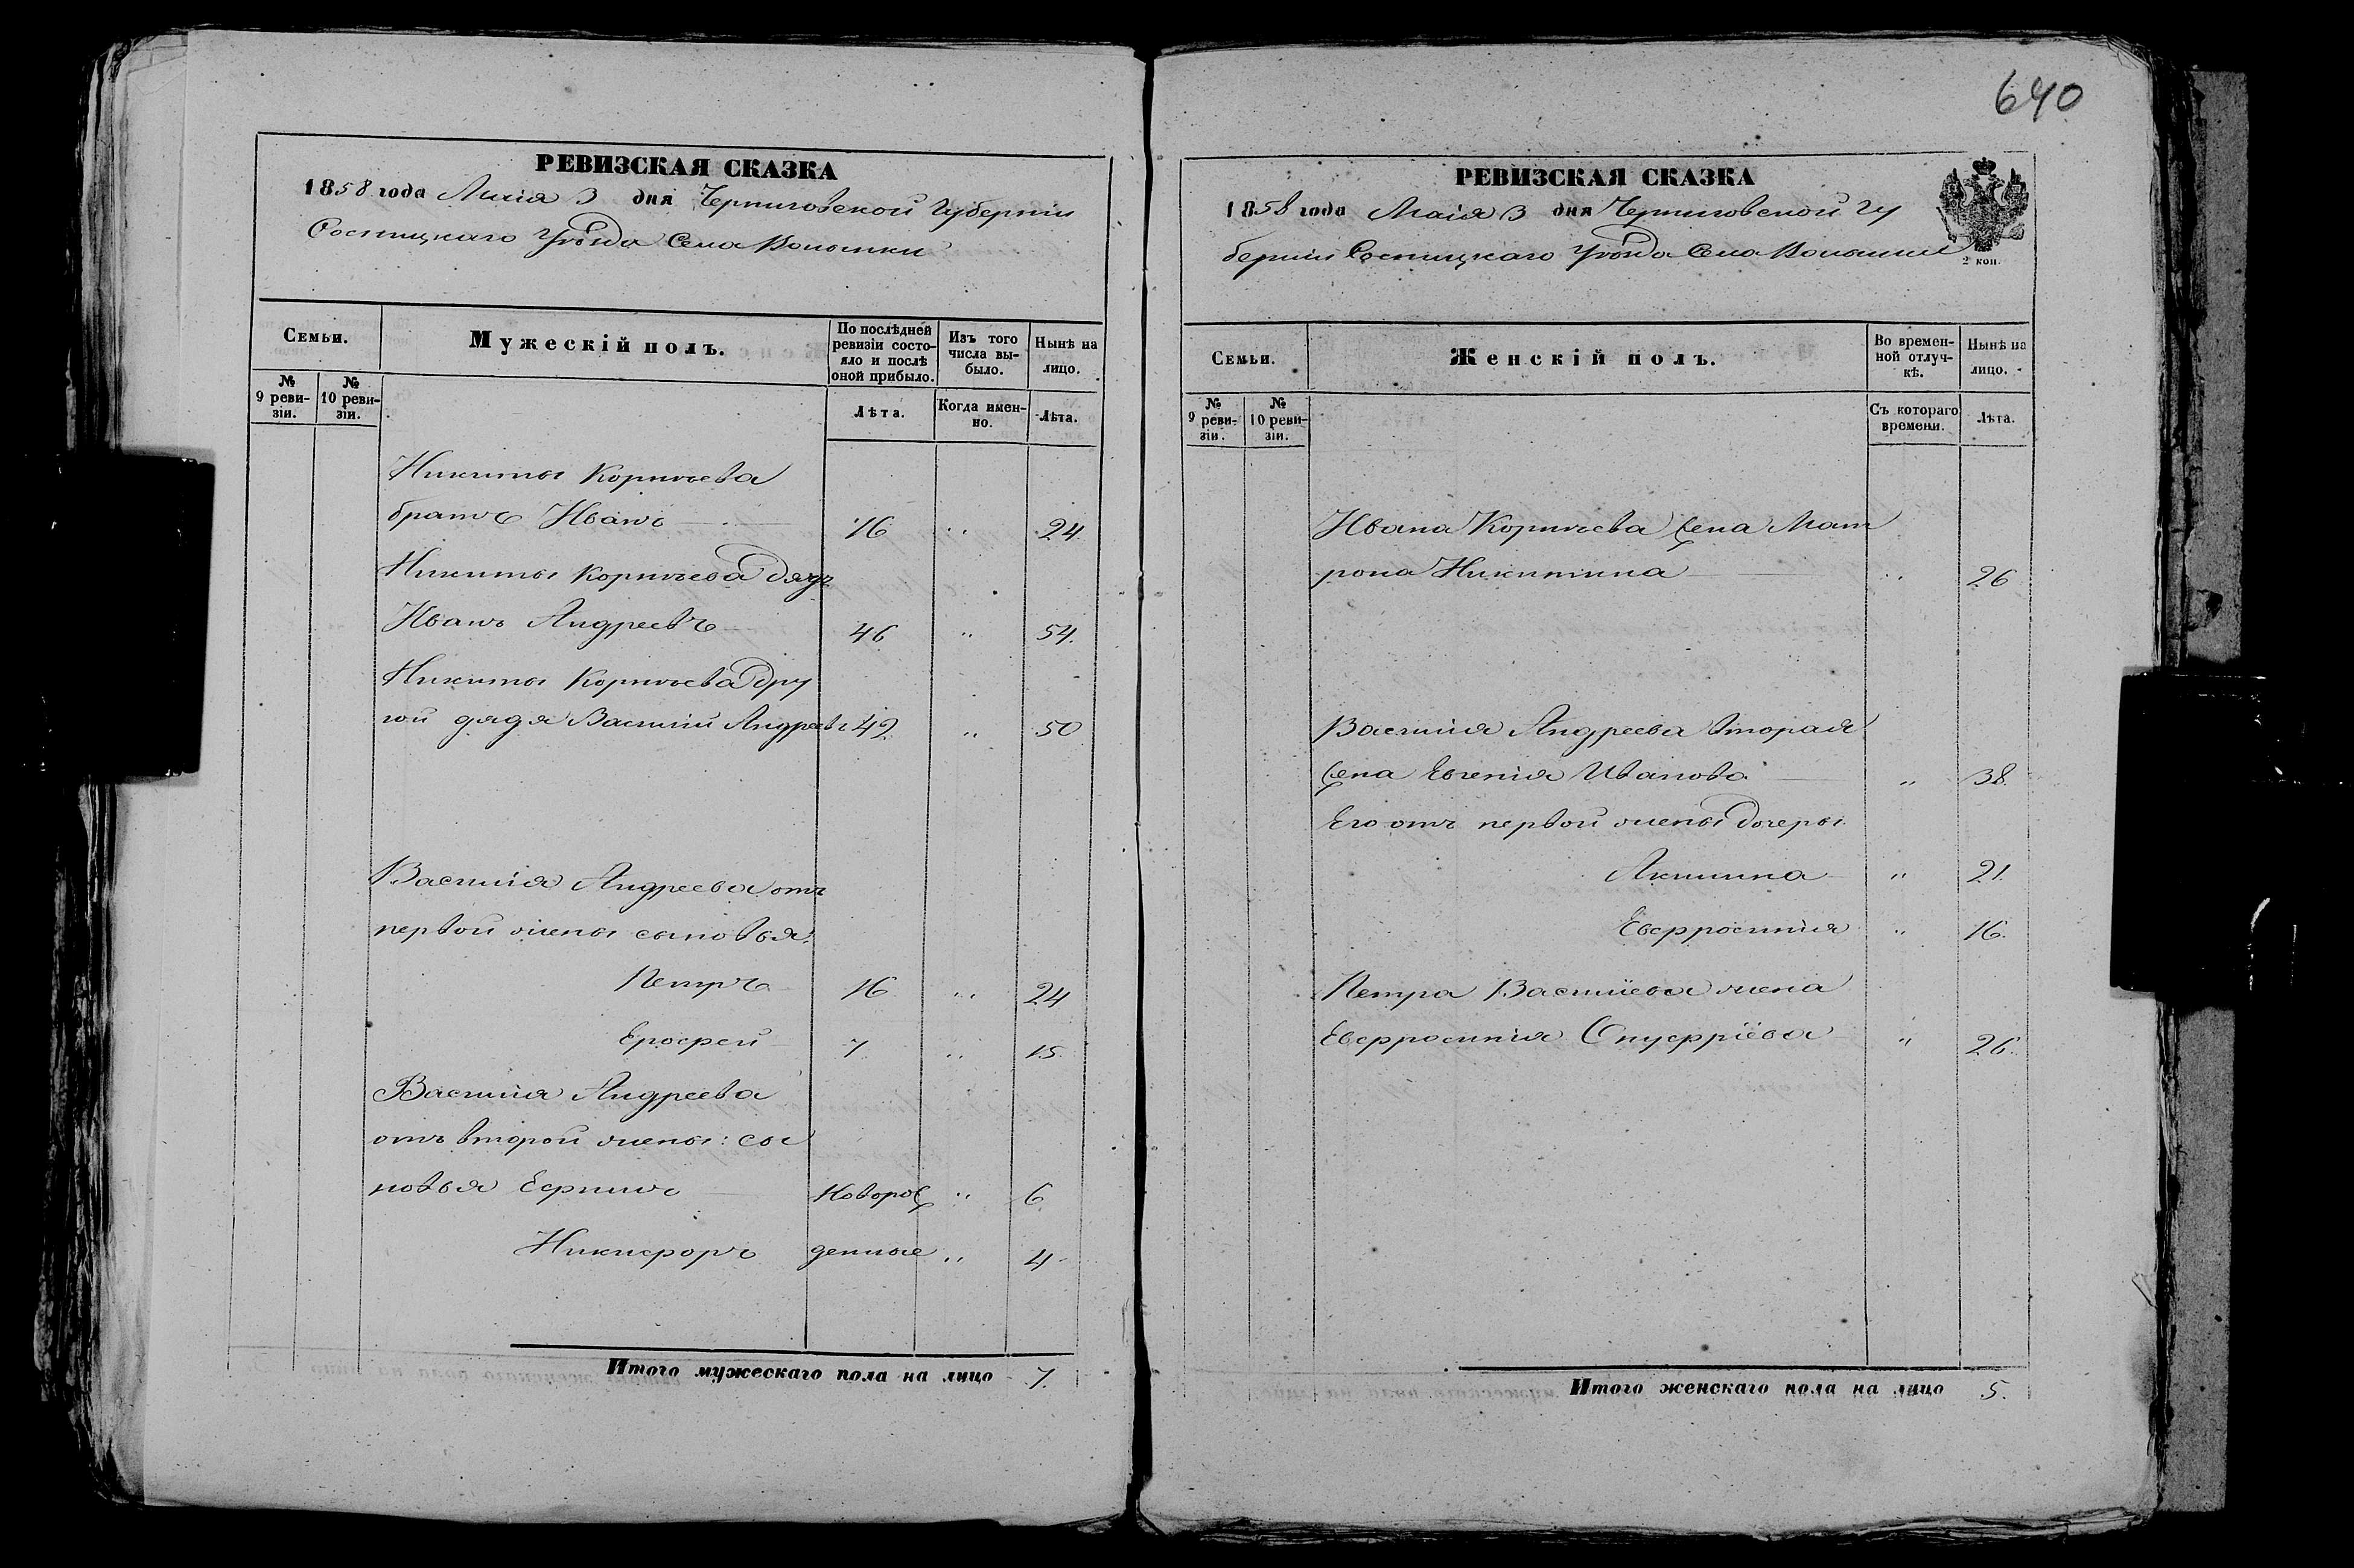 640
РЕВИЗСКАЯ СКАЗКА
1858 года Маія 3 дня Черниговской Губерніи
Сосницкаго Уѣзда Села
Семьи.
Мужескій полъ.
По послѣдней ревизіи состояло и послѣ оной прибыло.
Изъ того числа выбыло.
Нынѣ на лицо.
№ 9 ревизіи.
№ 10 ревизіи.
Лѣта.
Когда именно.
Лѣта.
Никиты Корнѣева
братъ Иванъ 16 „ 24
Никиты Корнѣева дядя
Иванъ Андреевъ 46 „ 54.
Никиты Корнѣева дру
гой дядя Василій Андреевъ 42 „ 50
Василія Андреева отъ
первой жены сыновья:
Петръ 16 „ 24
Ерофей 7 „ 15.
Василія Андреева
отъ второй жены: сы
новья Ефимъ Новорож „ 6
Никифоръ денные „ 4
Итого мужескаго пола на лицо 7.
РЕВИЗСКАЯ СКАЗКА
1858 года Маія 3 дня Черниговской Гу
берніи Сосницкаго Уѣзда Села
2 коп.
Семьи.
Женскій полъ.
Во временной отлучкѣ.
Нынѣ на лицо.
№ 9 ревизіи.
№ 10 ревизіи.
Съ котораго времени.
Лѣта.
Ивана Корнѣева жена Мат
рона Никитина „ 26
Василія Андреева вторая
жена Евгенія Иванова „ 38.
Его отъ первой жены дочеры
Акилина „ 21.
Евфросинія „ 16.
Петра Васильева жена
Евфросинія Онуфріева „ 26.
Итого женскаго пола на лицо 5.